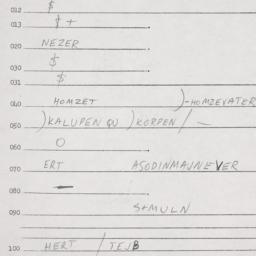 012 $
013 $ +
020 NEZER
030 $
031 $
040 HOMZET )-HOMZEVATER
050 )KALUPEN QU )KORPEN/ —
060 O
070 ERT ASODINMAJNEVER
080 —
090 S+MULN
100 HERT /TEJB